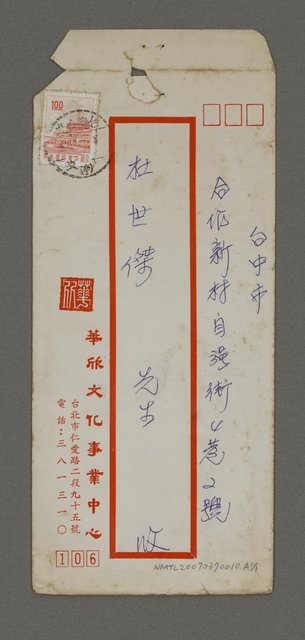 台中市
合作新村自强街4巷2號
杜世傑 先生 收
1.00
華欣
華欣文化事業中心
台北市仁愛路二段九十五號
電話：三八一三一〇
106
NMTL20070370010.A